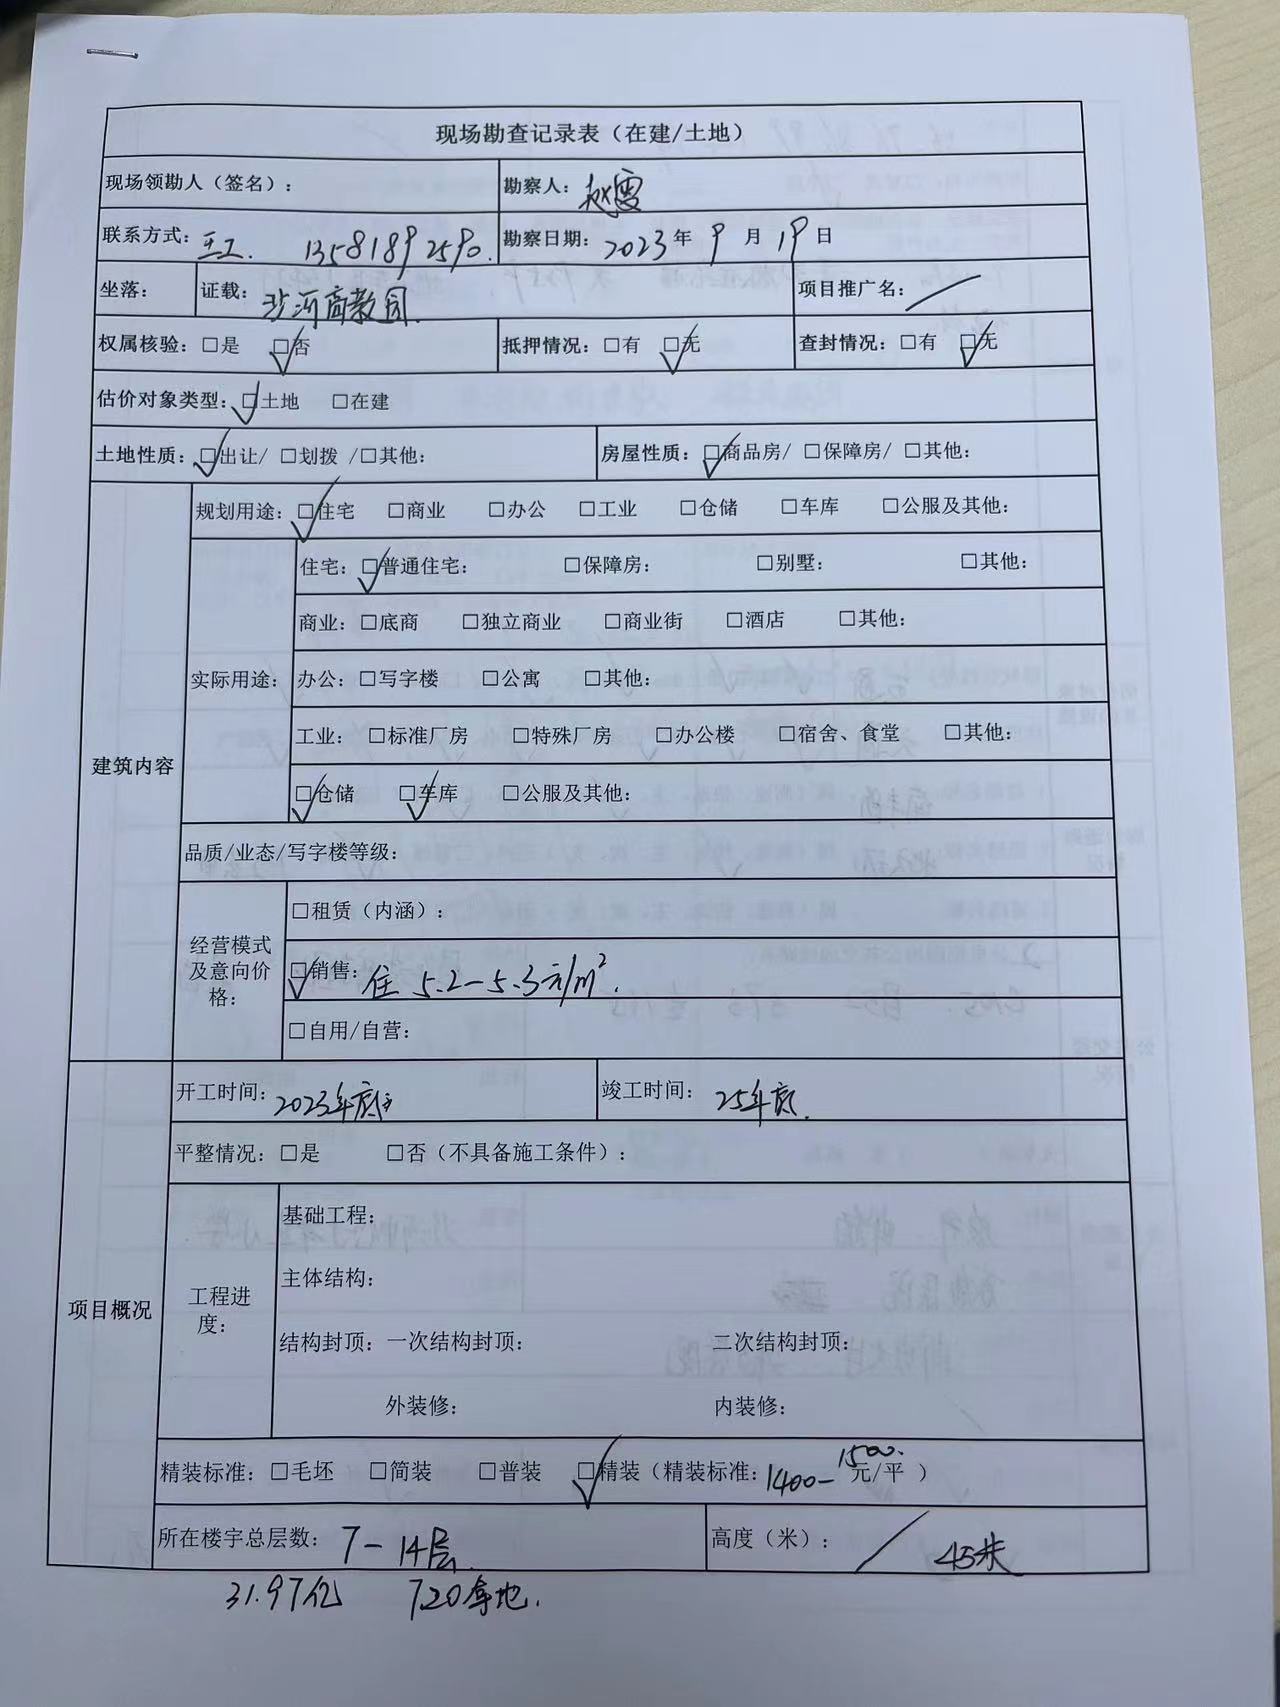 现场勘查记录表（在建/土地）
现场领勘人（签名）： 勘察人：赵雷
联系方式：王工 13581892590. 勘察日期：2023年9月19日
坐落： 证载：沙河高教园. 项目推广名：/
权属核验：□是 ☑否 抵押情况：□有 ☑无 查封情况：□有 ☑无
估价对象类型：☑土地 □在建
土地性质：☑出让/ □划拨 /□其他： 房屋性质：☑商品房/ □保障房/ □其他：
建筑内容
规划用途：☑住宅 □商业 □办公 □工业 □仓储 □车库 □公服及其他：
实际用途：
住宅：☑普通住宅： □保障房： □别墅： □其他：
商业：□底商 □独立商业 □商业街 □酒店 □其他：
办公：□写字楼 □公寓 □其他：
工业：□标准厂房 □特殊厂房 □办公楼 □宿舍、食堂 □其他：
☑仓储 ☑车库 □公服及其他：
品质/业态/写字楼等级：
经营模式
及意向价
格：
□租赁（内涵）：
☑销售：住 5.2-5.3元/m².
□自用/自营：
项目概况
开工时间：2023年底 竣工时间：25年底.
平整情况：□是 □否（不具备施工条件）：
工程进
度：
基础工程：
主体结构：
结构封顶：一次结构封顶： 二次结构封顶：
外装修： 内装修：
精装标准：□毛坯 □简装 □普装 ☑精装（精装标准：1400-1500.元/平 ）
所在楼宇总层数：7-14层. 高度（米）：/ 45米
31.97亿 720拿地.